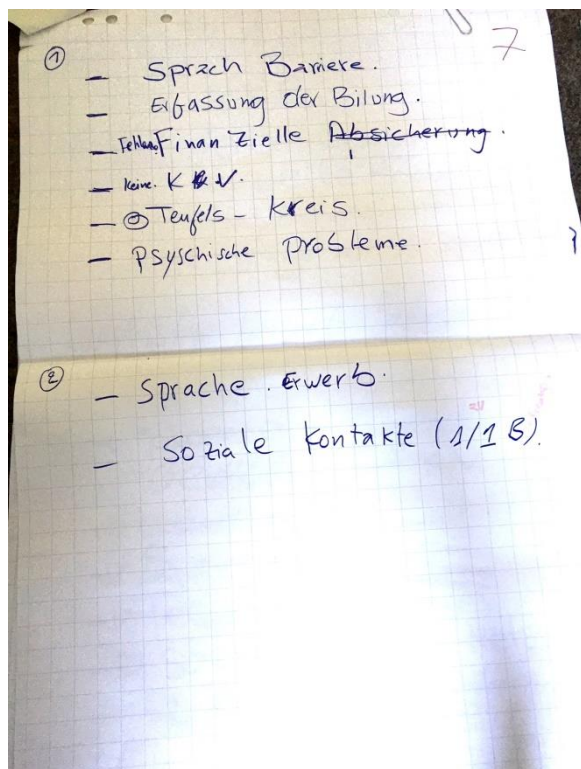 7
①
– Sprach Barriere.
– Erfassung der Bilung.
– Fehlen. Finanzielle Absicherung.
– keine. K V.
– Teufels – kreis.
– psyschische probleme.
②
– Sprache. Erwerb.
– Soziale kontakte (1/1 B).